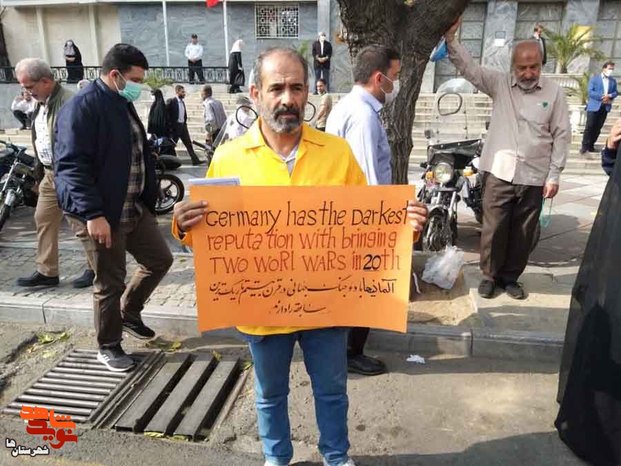 Germany has the Darkest
reputation with bringing
TWO WORL WARS in 20th
آلمانی‌ها با دو جنگ جهانی در قرن بیستم تاریک‌ترین
سابقه را دارند
نوید شاهد
شهرستان‌ها